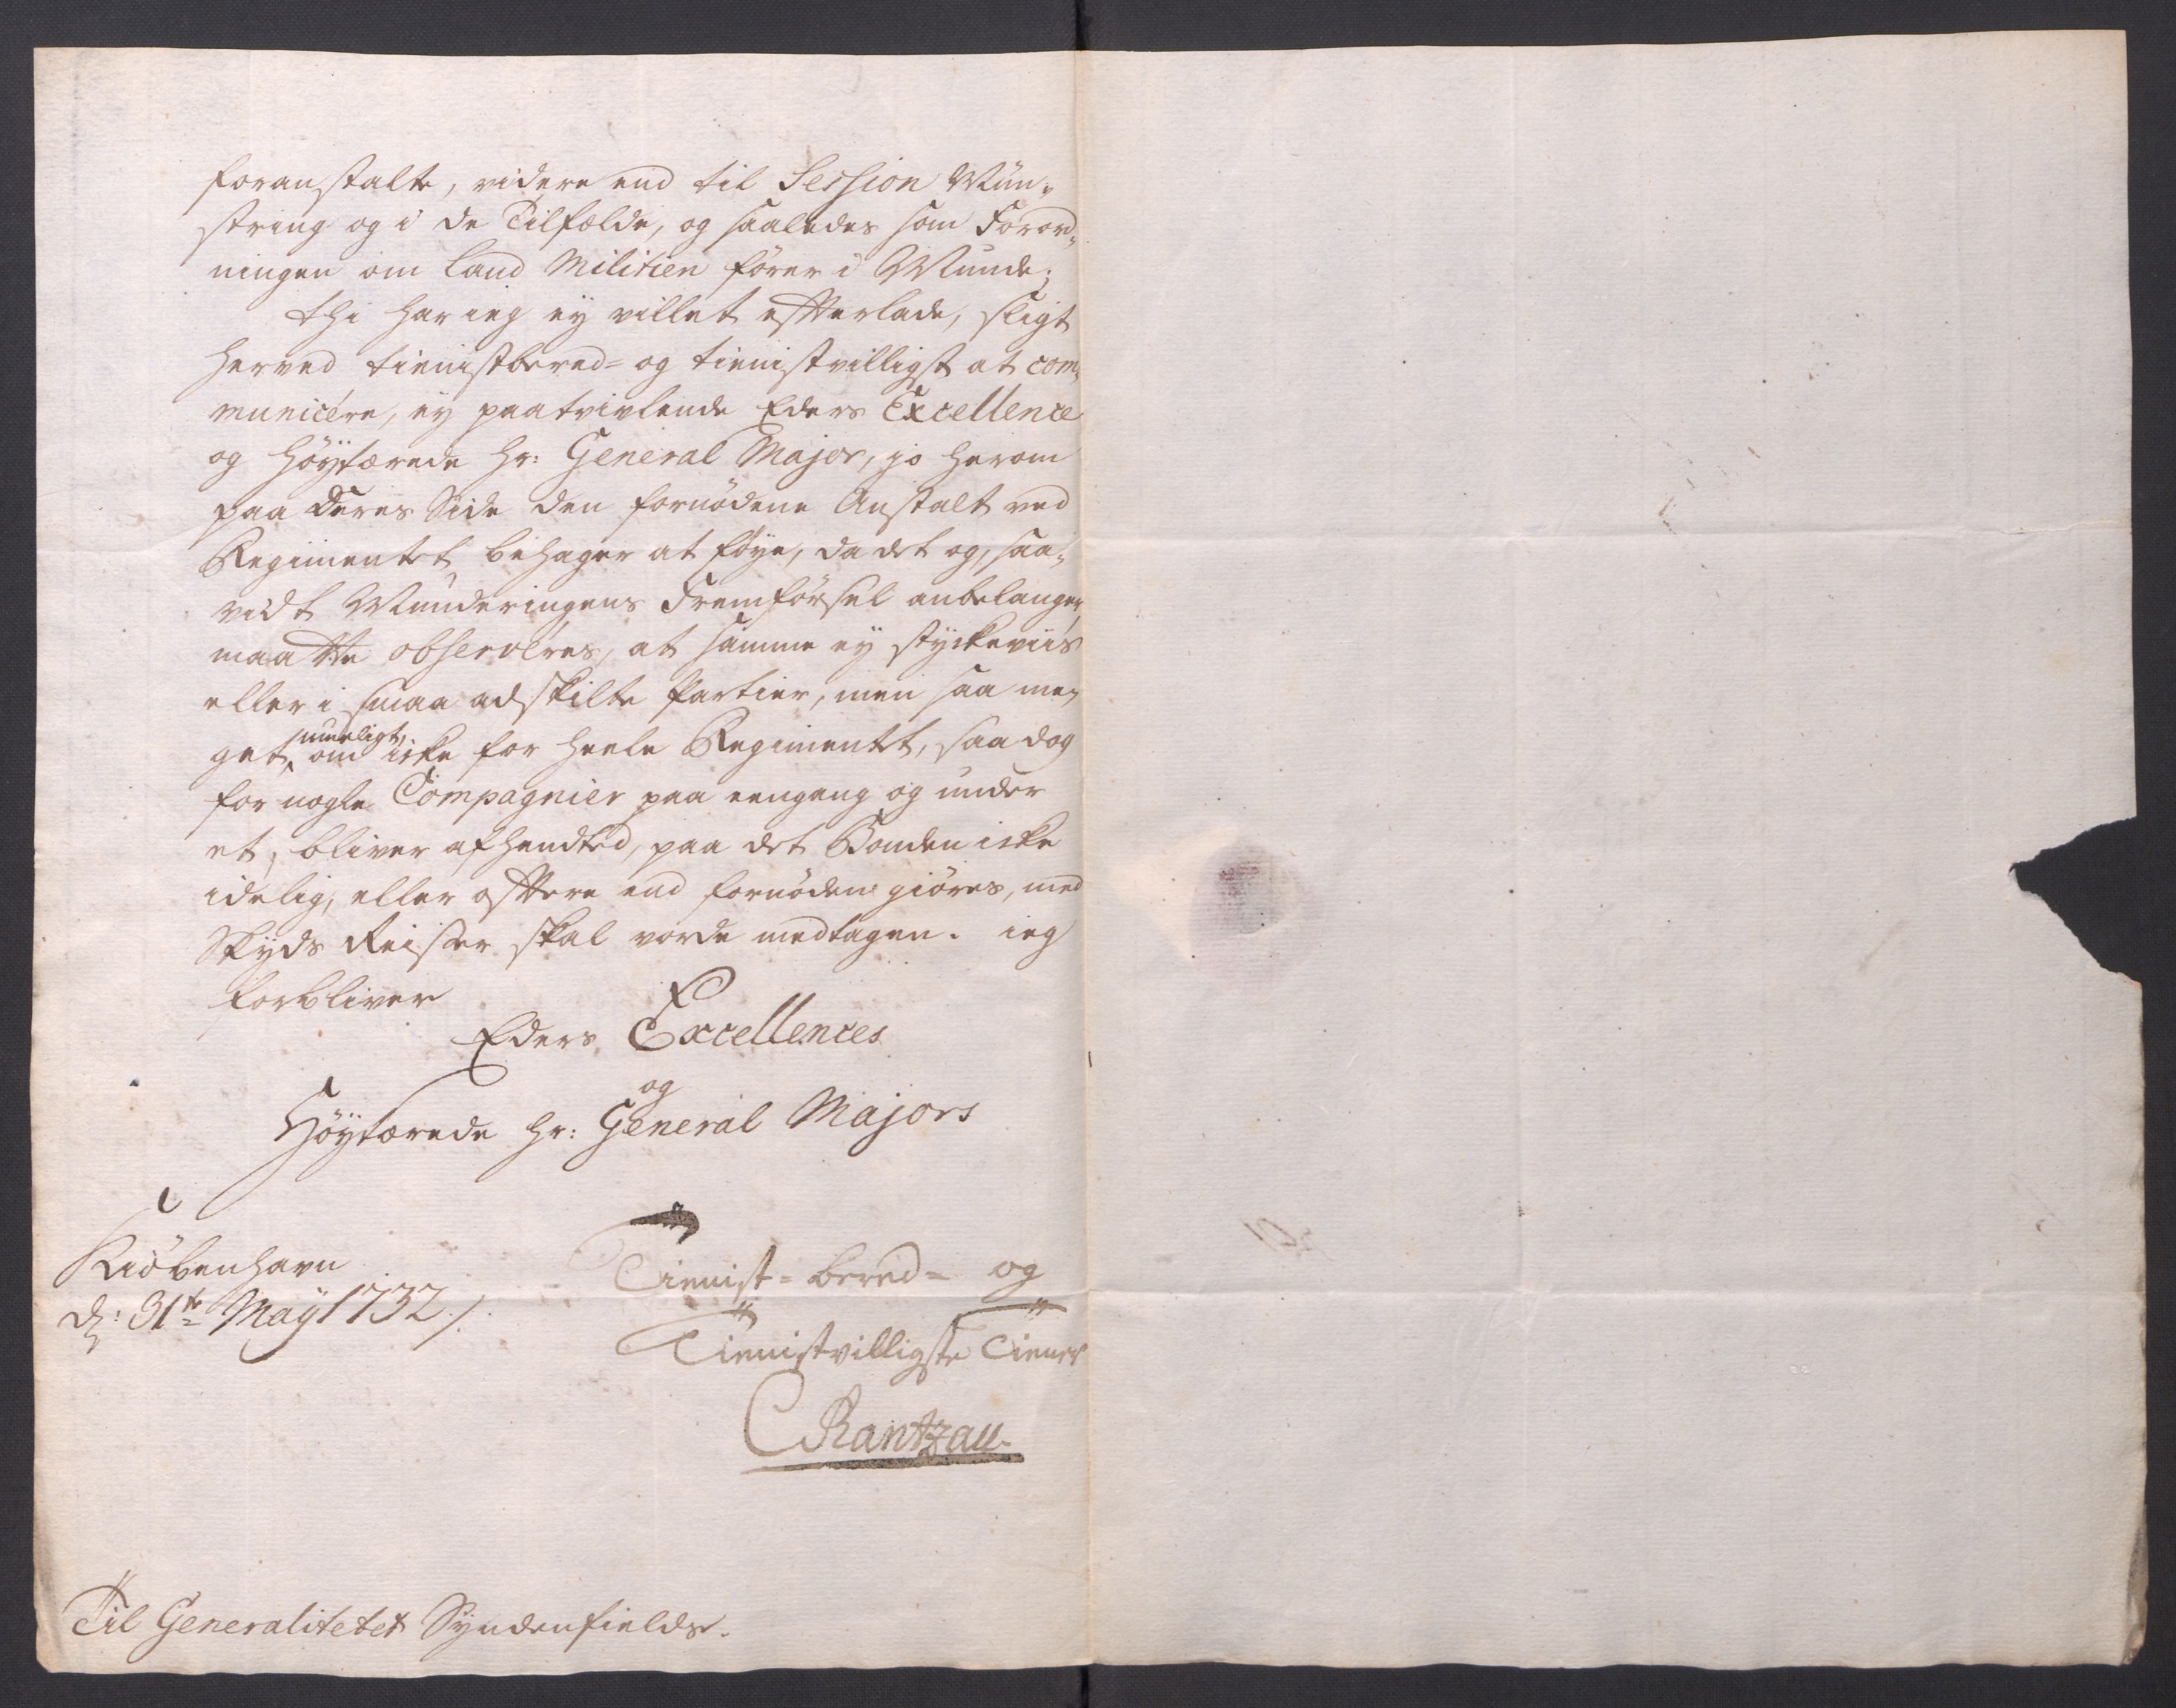 foranstalte, videre end til Session Mün-
string og i de Tilfælde, og saaledes som Forord-
ningen om Land Militien fører i Munde;
thi har ieg ey villet efterlade, sligt
herved tienistbered- og tienistvilligst at com-
municére, ey paatvivlende Eders Excellence
og Höytærede Hr: General Major, jo herom
paa Deres Side den fornödene Anstalt ved
Regimentet behager at föye, da det og, saa-
vidt Munderingens Fremförsel anbelanger,
maatte observéres, at samme ey stykeviis
eller i smaa adskilte Partier, men saa me-
get, mueligt, om icke for heele Regimentet, saa dog
for nogle Compagnier paa eengang og under
et, bliver afhendted, paa det Bonden icke
idelig, eller oftere end fornöden giöres, med
Skyds Reiser skal vorde medtagen. ieg
forbliver
Eders Excellences
og
Höytærede Hr: General Majors
Kiöbenhavn
d: 31te May 1732 /.
Tienist-bered- og
Tienistvilligste Tiener
CRantzau
Til Generalitetet Syndenfields.